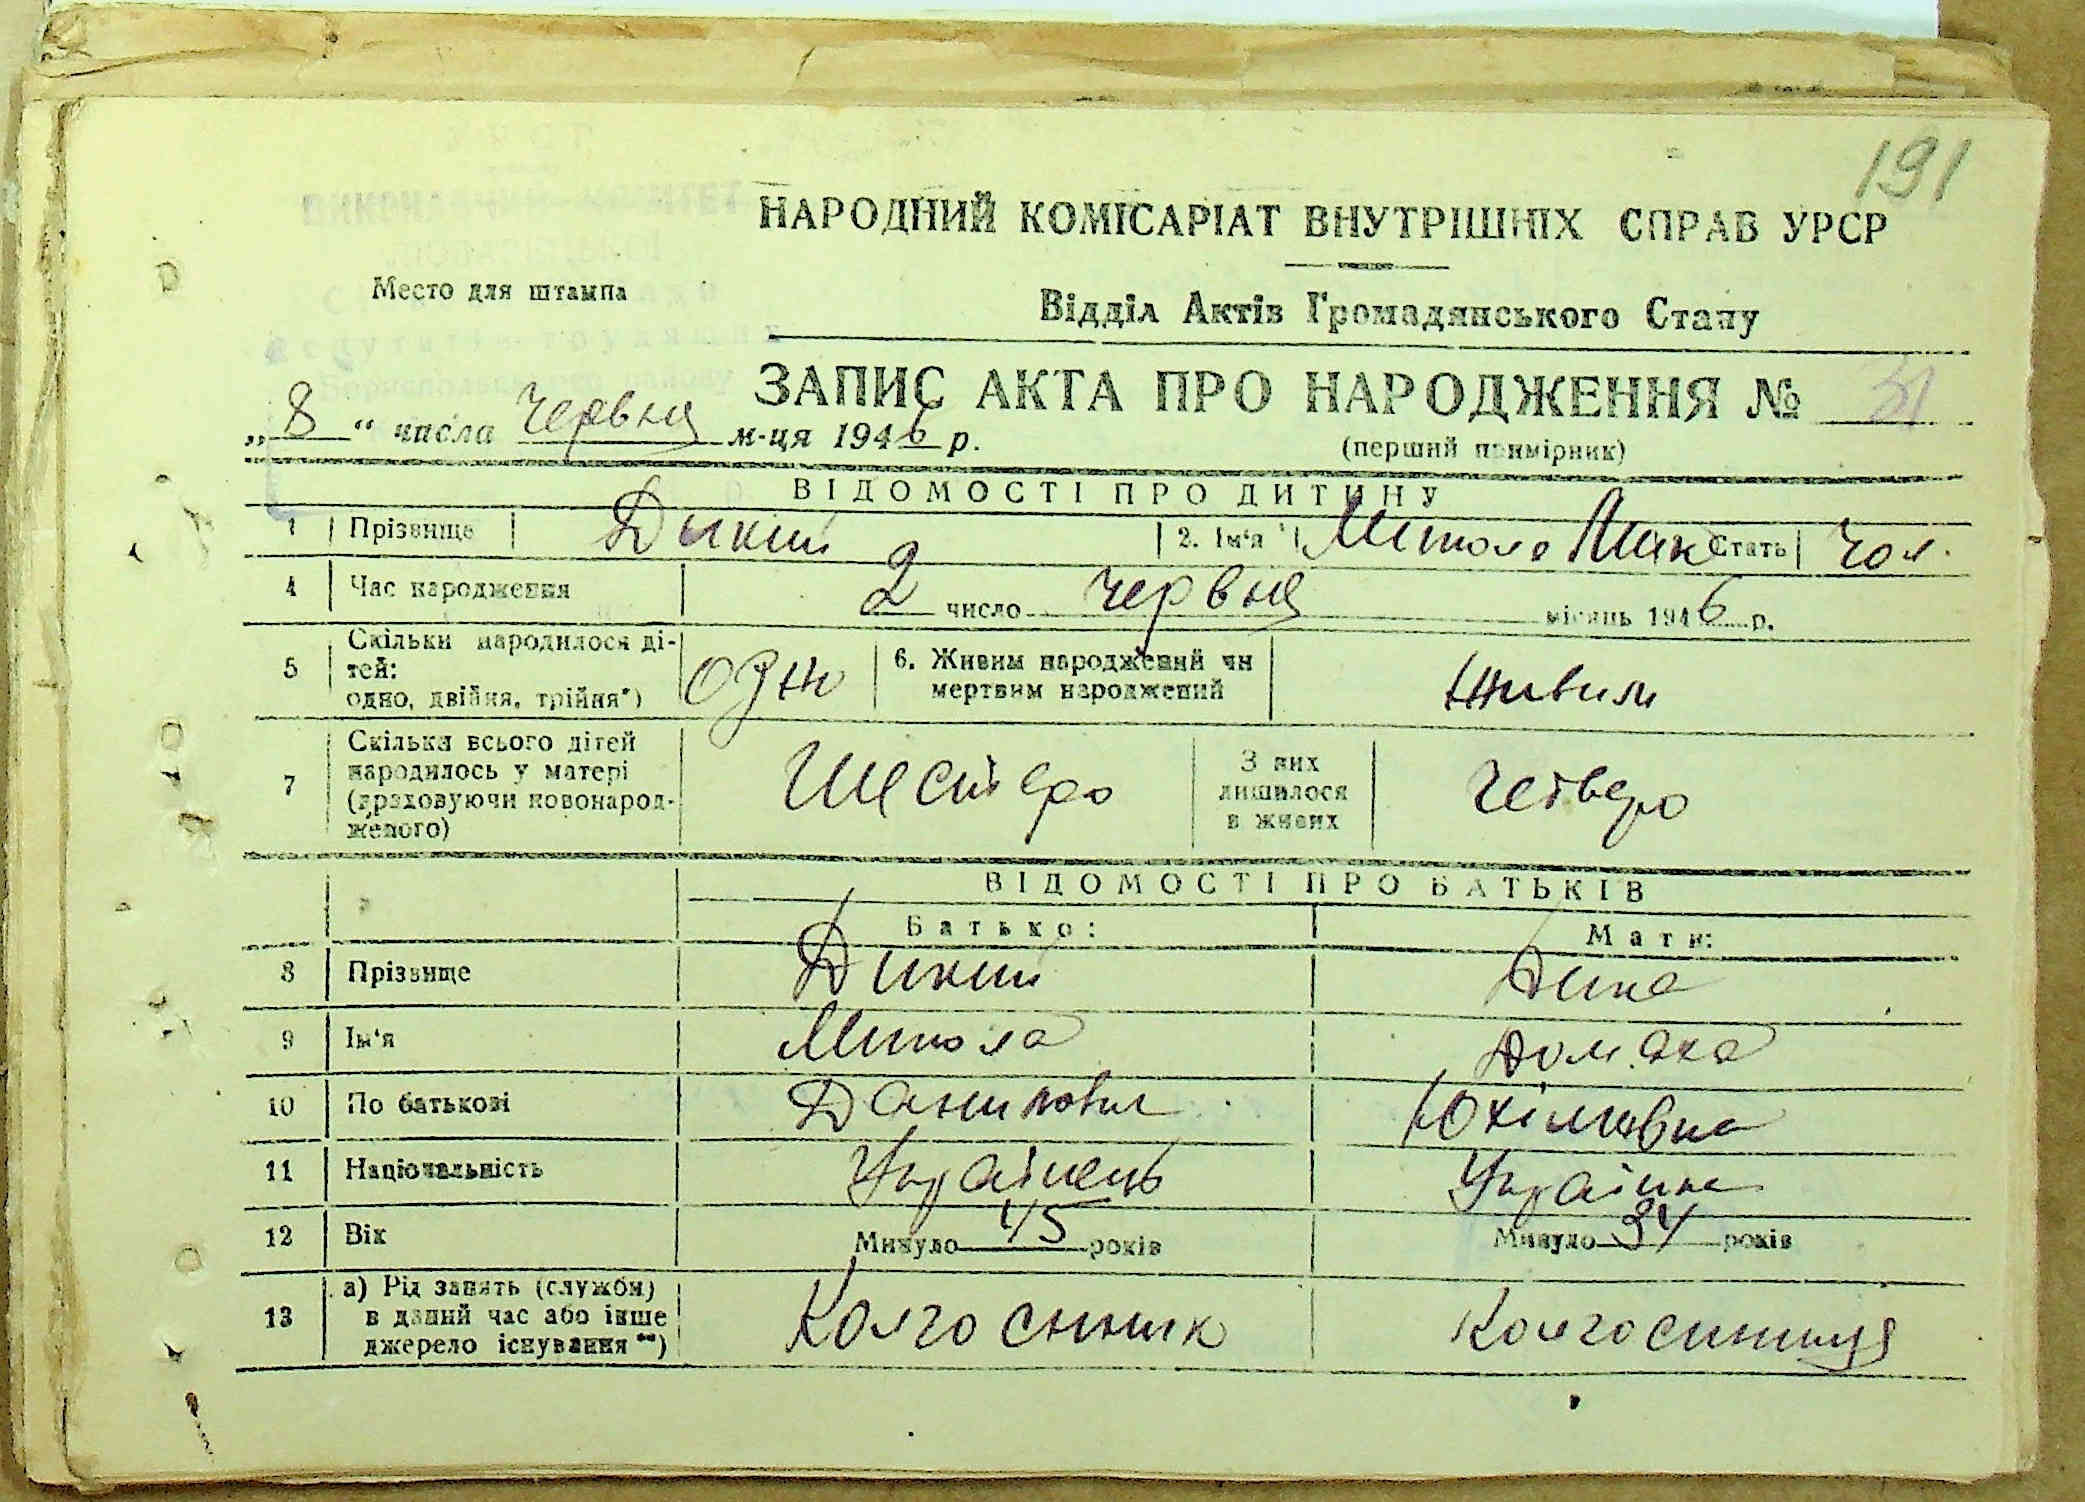 191
НАРОДНИЙ КОМІСАРІАТ ВНУТРІШНІХ СПРАВ УРСР
Место для штампа
Відділ Актів Громадянського Стану
ЗАПИС АКТА ПРО НАРОДЖЕННЯ № 31
„8“ числа червня м-ця 1946 р.
(перший примірник)
ВІДОМОСТІ ПРО ДИТИНУ
1 Прізвище Дикий 2. Ім'я Микола Мик Стать Чол.
4 Час народження 2 число червня місяць 1946 р.
5 Скільки народилося ді-
тей:
одно, двійня, трійня*) одно 6. Живим народжений чи
мертвим народжений живим
7 Скільки всього дітей
народилось у матері
(враховуючи новонарод-
женого) Шестеро З них
лишилося
в живих Четверо
ВІДОМОСТІ ПРО БАТЬКІВ
Батько: Мати:
8 Прізвище Дикий Дика
9 Ім'я Микола Домаха
10 По батькові Данилович Юхімівна
11 Національність Українець Українка
12 Вік Минуло 45 років Минуло 34 років
13 а) Рід занять (служби)
в даний час або інше
джерело існування **) Колгоспник Колгоспниця